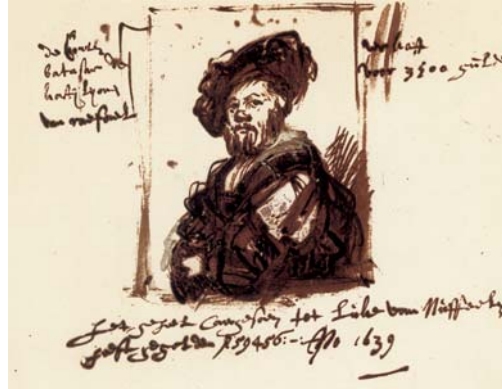 de Conte
batasar de
kastijlyone
van raefael
verkoft
voor 3500 gulde
het geheel Caergesoen tot Luke van Nuffeele
heeft gegolden f 59456:- Ano 1639